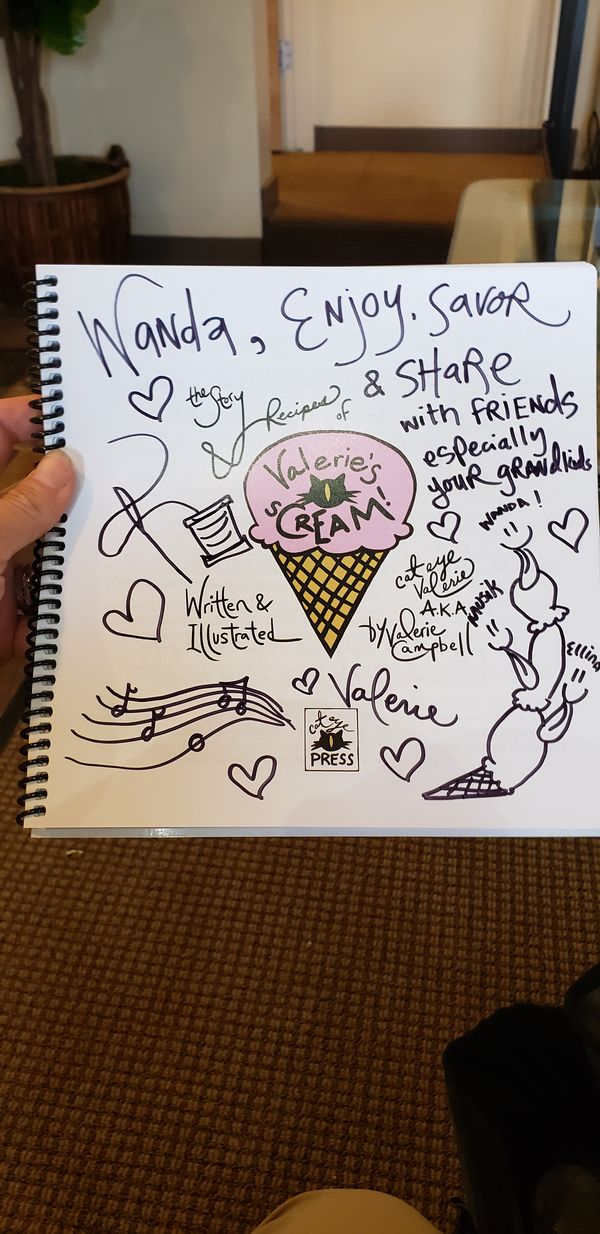 Wanda, Enjoy. Savor
& SHARE
with FRIENDS
especially
your GRANdkids
the Story
& Recipes of
Valerie's
sCREAM!
Written &
Illustrated
cat eye
Valerie
A.K.A.
by Valerie
Campbell
WANDA!
MUSIK
Valerie
cat eye
PRESS